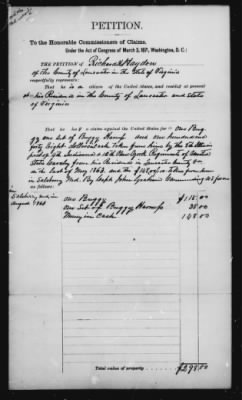 PETITION.
To the Honorable Commissioners of Claims,
Under the Act of Congress of March 3, 1871, Washington, D. C.:
THE PETITION OF Richard Haydon
of the County of Lancaster in the State of Virginia
That he is a citizen of the United States, and resided at present
at his Residence in the County of Lancaster and State
of Virginia
That he has a claim against the United States for One Bug-
gy one Set of Buggy Harness and one hundred
forty Eight Dollars cash Taken from him by the 8th Illinois
part of 8th Indiana & 10th New York Regiments of United
State Cavalry from his Residence in Lancaster County on
in the Last of May 1863. and the $148.00 Taken from him
in Salisbury Md. By Capt John Graham Commanding U.S forces
as follows:
In Salisbury Md, in
August 1863
One Buggy $115.00
One Set of Buggy Harness 35.00
Money in Cash 148.00
Total value of property $298.00